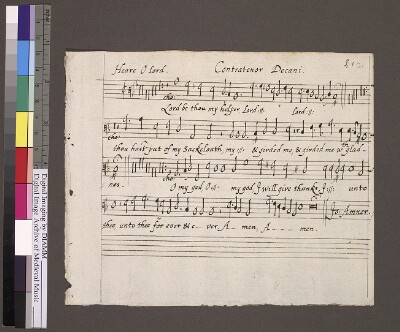 Heare O lord. Contratenor Decani.
cho:
Lord be thou my helper lord :||: lord :||:
cho:
thou hast put of my Sackcloath my :||: & girded me, & girded me wth glad-
nes. cho: O my god, O :||: my god I will give thanks, I :||: unto
thee unto thee for ever & e-ver A-men, A-men.
Jo: Amner.
Digital Imaging by DIAMM
Digital Image Archive of Medieval Music